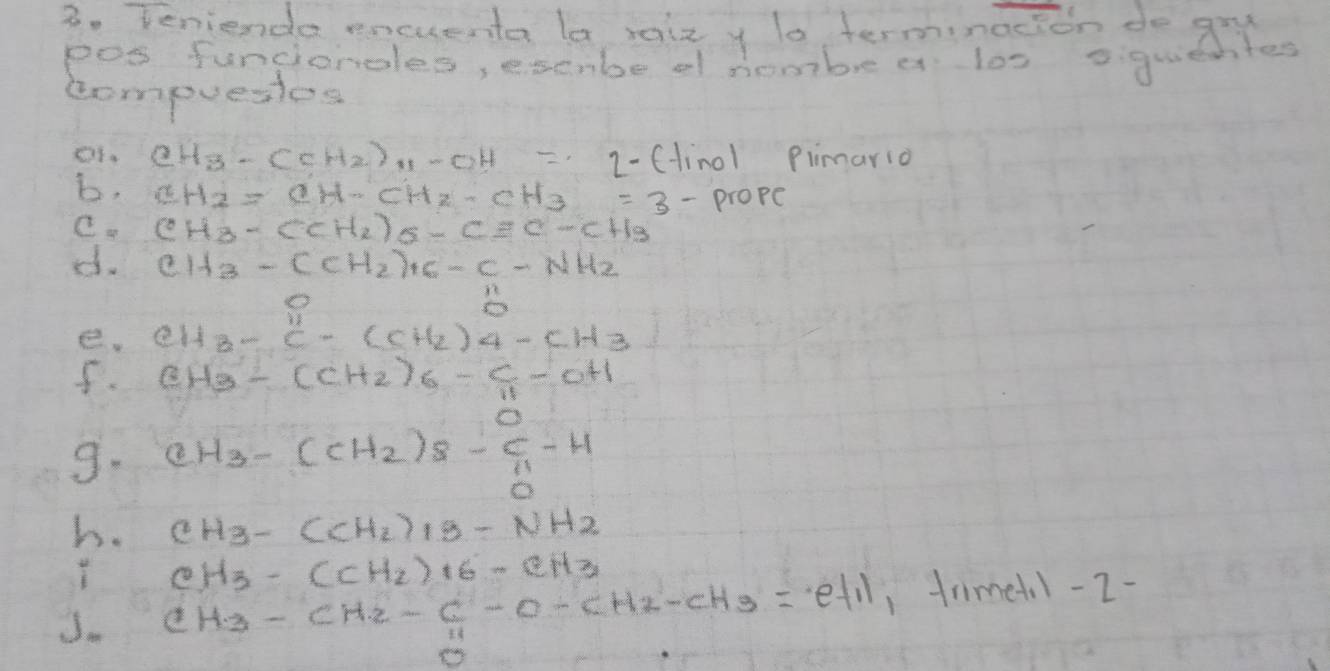 3. Teniendo encuenta la raiz y la terminación de gru
pos funcionales, escribe el nombre a los siguientes
compuestos
a. CH3 - (CH2)11 - OH = 2-Etinol Primario
b. CH2 = CH - CH2 - CH3 = 3 - prope
c. CH3 - (CH2)5 - C ≡ C - CH3
d. CH3 - (CH2)16 - C - NH2
O
"
"
O
e. CH3 - C - (CH2)4 - CH3
f. CH3 - (CH2)6 - C - OH
"
O
g. CH3 - (CH2)8 - C - H
"
O
h. CH3 - (CH2)13 - NH2
i CH3 - (CH2)16 - CH3
j. CH3 - CH2 - C - O - CH2 - CH3 = etil, trimetil - 2 -
"
O